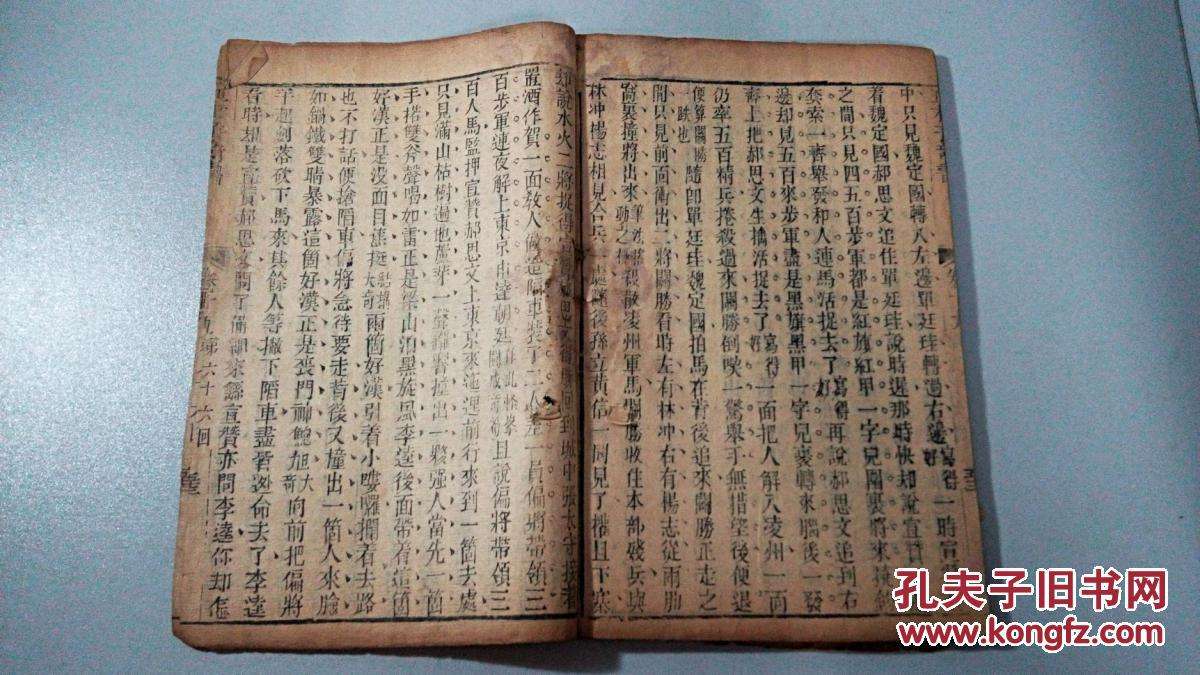 中只見魏定國轉入左邊單廷珪轉過右邊寫得好一時宣
着魏定國郝思文追住單廷珪說時遲那時快却說宣贊
之間只見四五百步軍都是紅旗紅甲一字兒圍裹將來
套索一齊舉發和人連馬活捉去了寫得好再說郝思文追到右
邊却見五百來步軍盡是黑旗黑甲一字兒裹轉來腦後一發
齊上把郝思文生擒活捉去了寫得好一面把人解入凌州一面
仍率五百精兵捲殺過來關勝倒喫一驚舉手無措望後便退
便算關勝一跌也隨即單廷珪魏定國拍馬在背後追來關勝正走之
間只見前面衝出二將關勝看時左有林冲右有楊志從兩肋
窩裏撞將出來殺散凌州軍馬關勝收住本部殘兵與
林冲楊志相見合兵一處隨後孫立黃信一同見了權且下寨
却說水火二將捉得宣贊郝思文得勝回到城中張太守接着
置酒作賀一面教人做造陷車裝了二人差一員偏將帶領三
百步軍連夜解上東京申達朝廷且說偏將帶領三
百人馬監押宣贊郝思文上東京來迤邐前行來到一箇去處
只見滿山枯樹遍地蘆芽一聲鑼響撞出一夥强人當先一箇
手搭雙斧聲喝如雷正是梁山泊黑旋風李逵後面帶着這箇
好漢正是没面目焦挺結撰大奇兩箇好漢引着小嘍囉攔着去路
也不打話便搶陷車偏將急待要走背後又撞出一箇人來臉
如鍋鐵雙睛暴露這箇好漢正是喪門神鮑旭大奇向前把偏將
手起劍落砍下馬來其餘人等撇下陷車盡皆逃命去了李逵
看時却是宣贊郝思文問了備細來繇宣贊亦問李逵你却怎
六十六回
孔夫子旧书网
www.kongfz.com